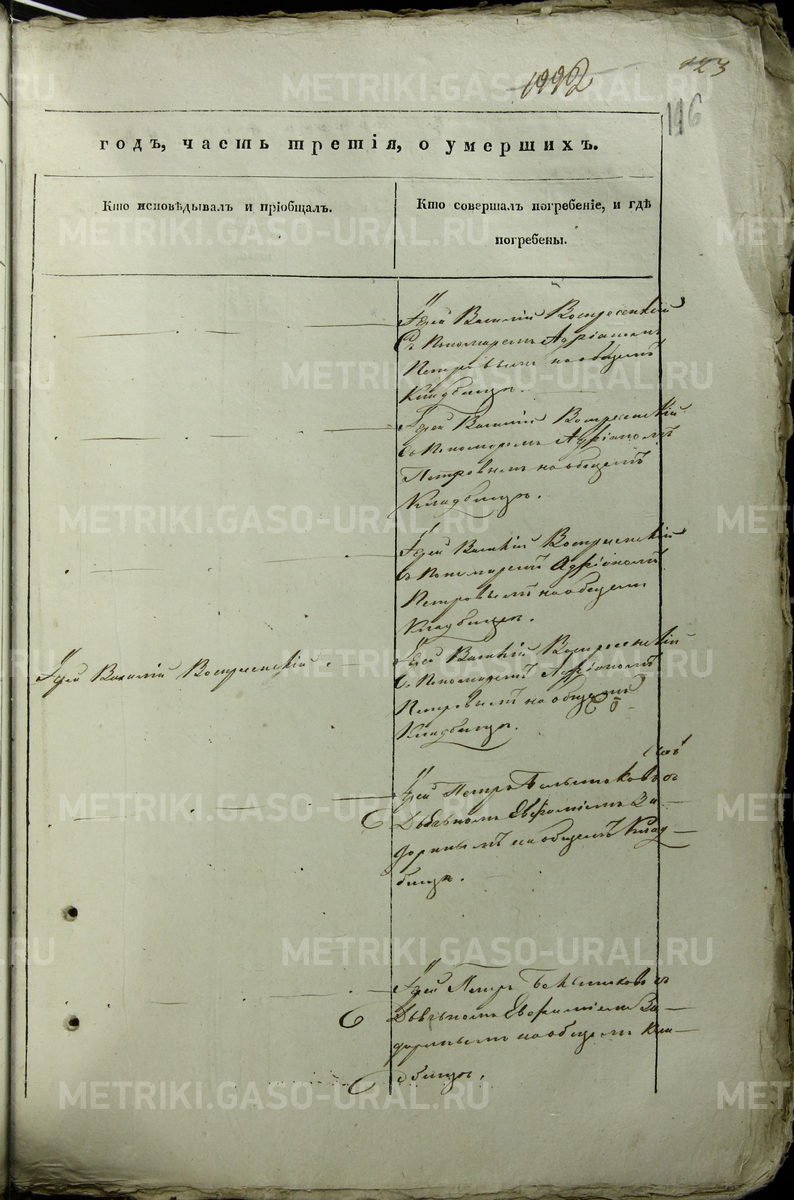 1992
123
116
годъ, часть третія, о умершихъ.
Кто исповѣдывалъ и пріобщалъ.
Кто совершалъ погребеніе, и гдѣ
погребены.
Іерей Василій Воскресенскій
Съ Пономаремъ Адріаномъ
Петровымъ на общемъ
Кладбищѣ.
Іерей Василій Воскресенскій
съ Пономаремъ Адріаномъ
Петровымъ на общемъ
Кладбищѣ.
Іерей Василій Воскресенскій
съ Пономаремъ Адріаномъ
Петровымъ на общемъ
Кладбищѣ.
Іерей Василій Воскресенскій.
Іерей Василій Воскресенскій
Съ Пономаремъ Адріаномъ
Петровымъ на общемъ
Кладбищѣ.
Іерей Петръ съ
Дьячкомъ Евфиміемъ За-
на общемъ Клад-
бищѣ.
Іерей Петръ съ
Дьячкомъ Евфиміемъ За-
на общемъ Кла-
дбищѣ.
METRIKI.GASO-URAL.RU